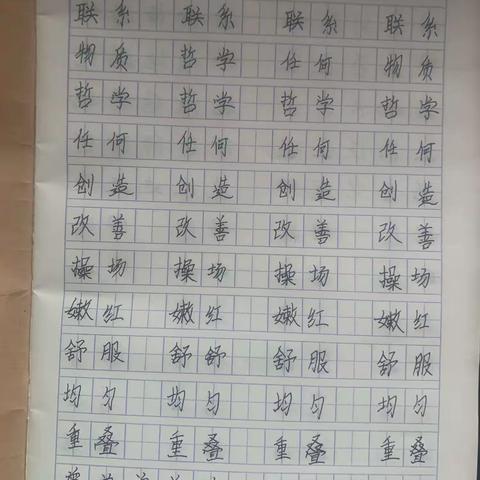 联系 联系 联系 联系
物质 哲学 任何 物质
哲学 哲学 哲学 哲学
任何 任何 任何 任何
创造 创造 创造 创造
改善 改善 改善 改善
操场 操场 操场 操场
嫩红 嫩红 嫩红 嫩红
舒服 舒舒 舒服 舒服
均匀 均匀 均匀 均匀
重叠 重叠 重叠 重叠